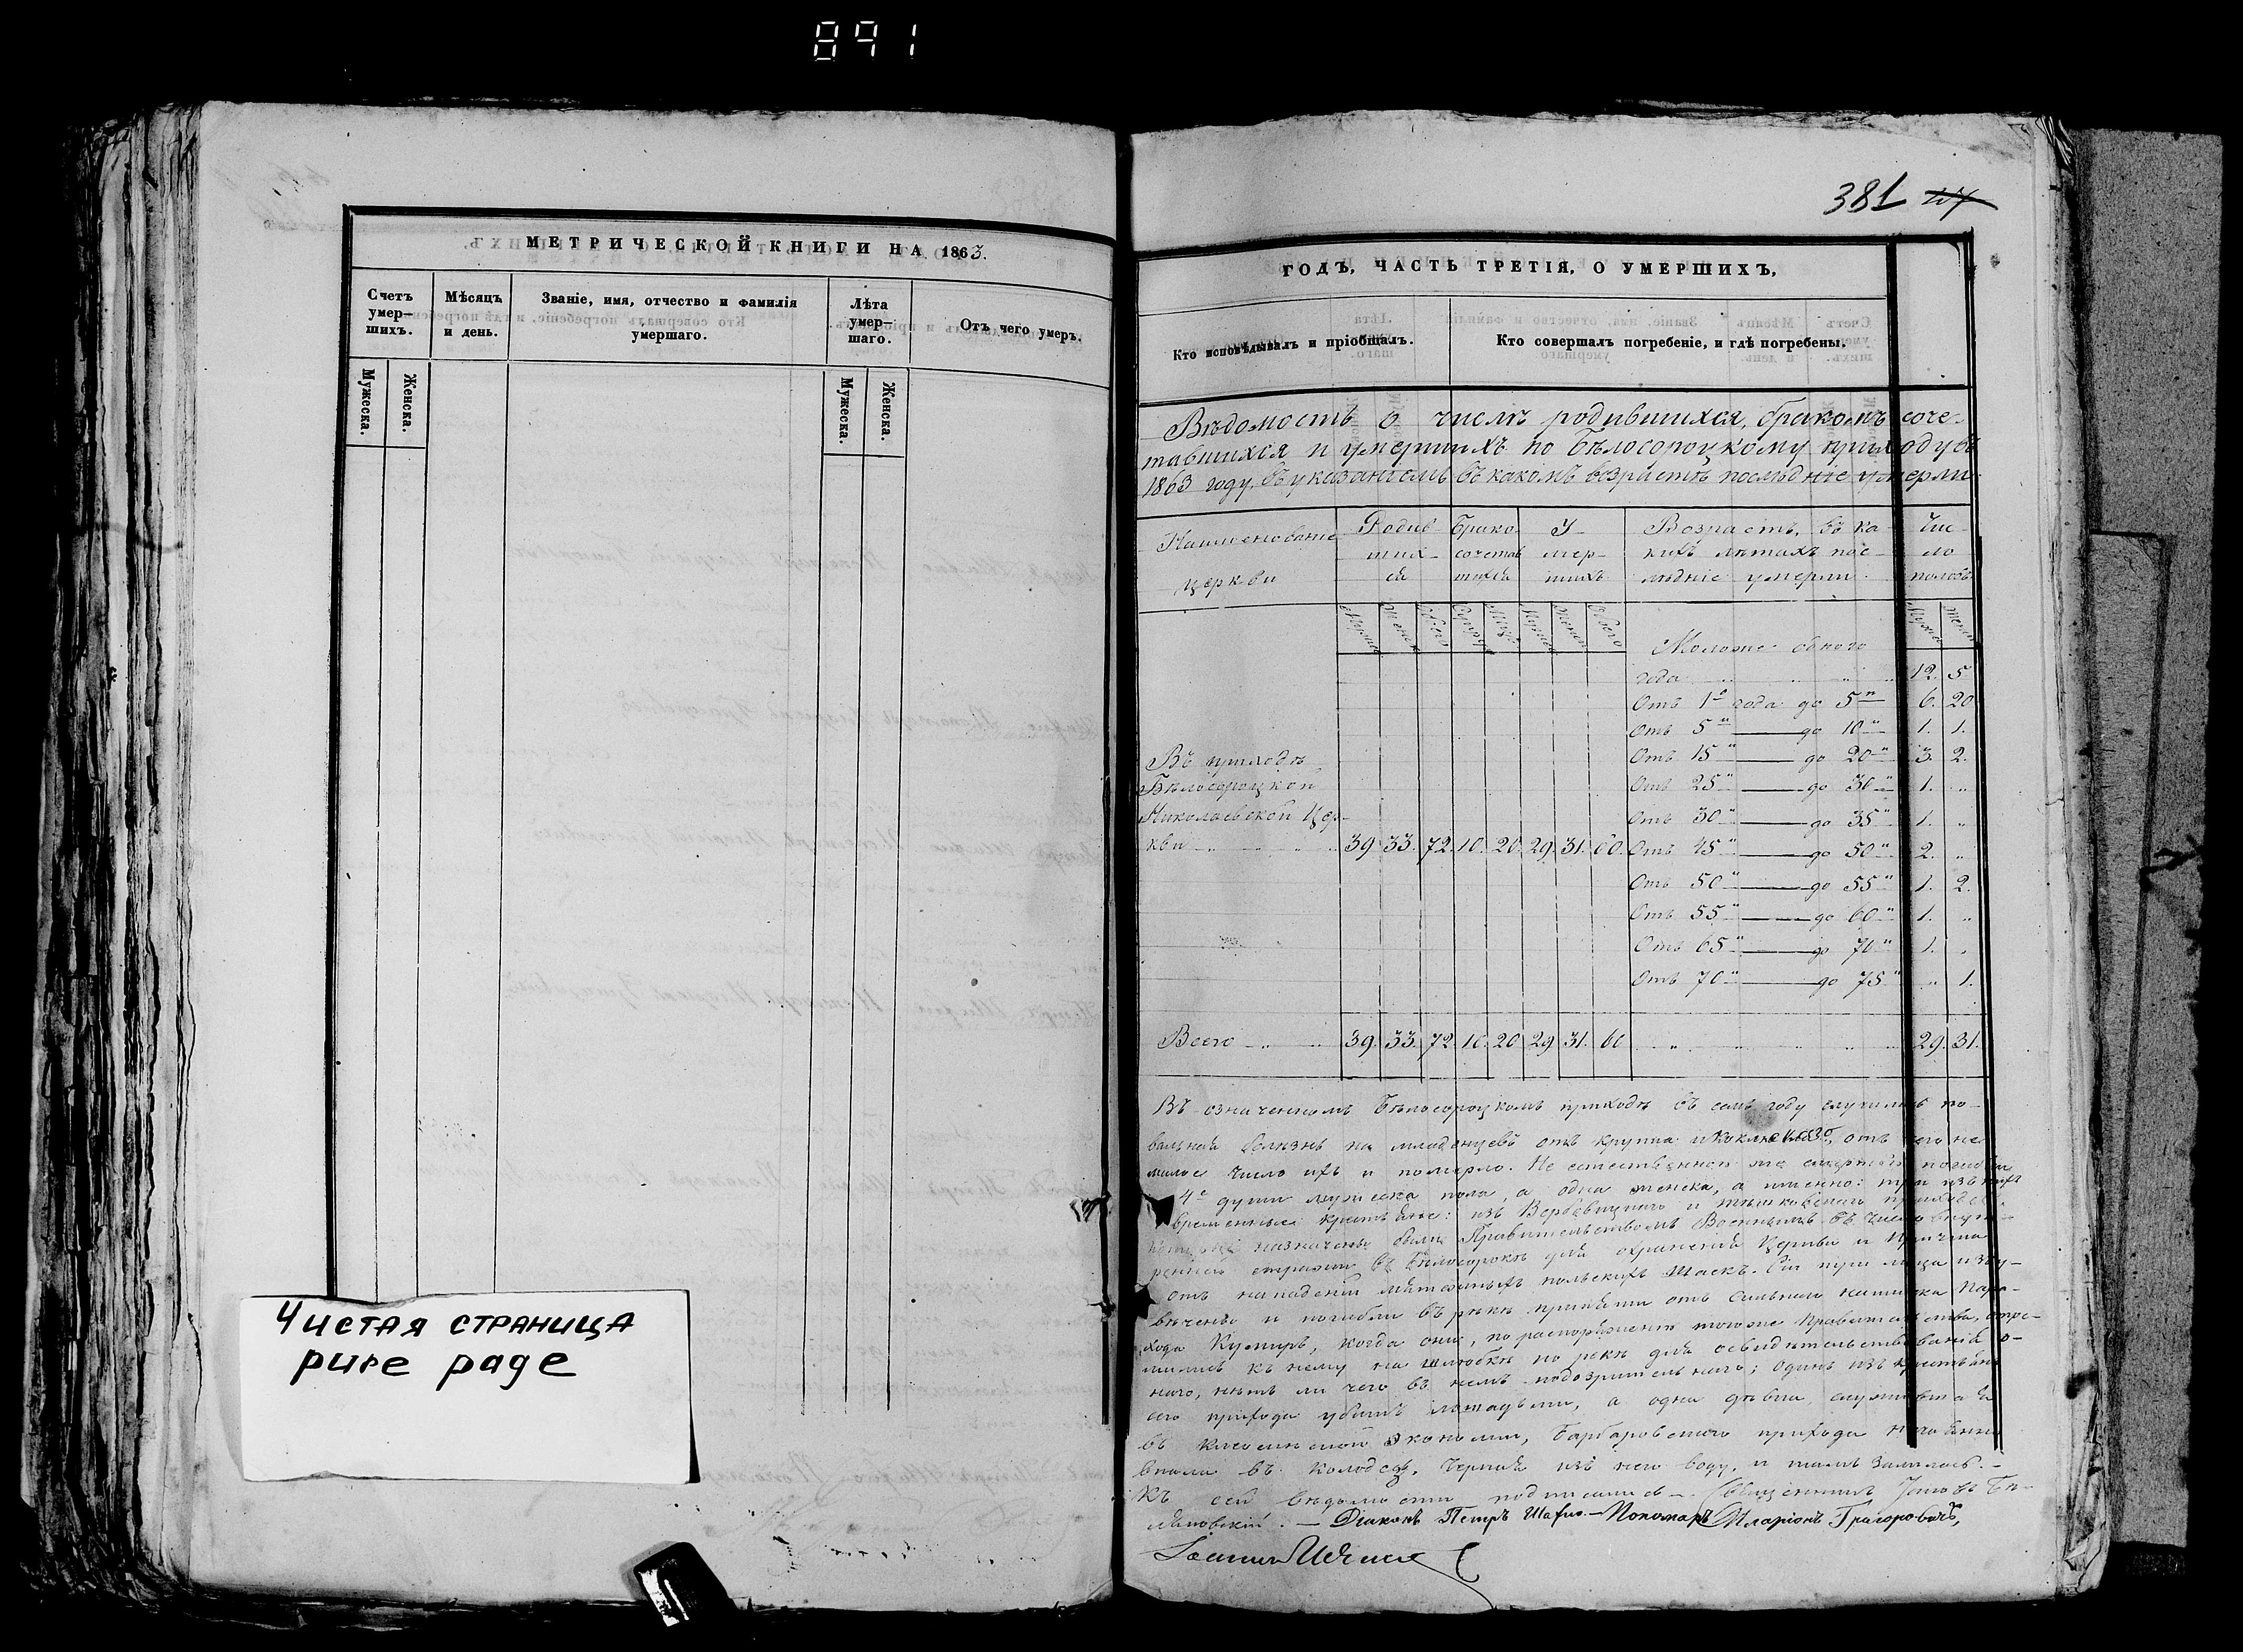 891
МЕТРИЧЕСКОЙ КНИГИ НА 1863.
Счетъ умер-шихъ.
Мѣсяцъ и день.
Званіе, имя, отчество и фамилія умершаго.
Лѣта умер-шаго.
Отъ чего умеръ.
Мужеска.
Женска.
Мужеска.
Женска.
Чистая страница
pure page
381
ГОДЪ, ЧАСТЬ ТРЕТІЯ, О УМЕРШИХЪ,
Кто исповѣдывалъ и пріобщалъ.
Кто совершалъ погребеніе, и гдѣ погребены.
Вѣдомость о числѣ родившихся, бракомъ соче-
тавшихся и умершихъ по Бѣлосороцкому приходу въ
1863 году, съ указаніемъ въ какомъ возрастѣ послѣдніе умерли.
Наименованіе церкви
Родив-ших-ся
Брако-сочетав-шихся
У-мер-шихъ
Возрастъ, въ ка-кихъ лѣтахъ пос-лѣдніе умерли.
Чис-ло половъ
Моложе одного
года 12. 5
Отъ 1 года до 5 6. 20
Отъ 5 до 10 1. 1.
Отъ 15 до 20 3. 2.
Отъ 25 до 30 1. "
Отъ 30 до 35 1. "
Въ приходѣ
Бѣлосороцкой
Николаевской Цер-
кви 39. 33. 72. 10. 20. 29. 31. 60. Отъ 45 до 50 2. "
Отъ 50 до 55 1. 2.
Отъ 55 до 60 1. "
Отъ 65 до 70 1. "
Отъ 70 до 75 " 1.
Всего 39. 33. 72. 10. 20. 29. 31. 60 29. 31.
Въ означенномъ Бѣлосороцкомъ приходѣ въ семъ году случилась по-
вальная болѣзнь на младенцевъ отъ круппа и коклюша, отъ чего не
малое число ихъ и померло. Не естественною же смертію
4 души мужеска пола, а одна женска, а именно: три изъ нихъ
временные крестьяне: изъ и приходовъ,
назначены были Правительствомъ Военнымъ въ число внут-
ренней стражи въ Бѣлосорокѣ для охраненія Церкви и Причта
отъ нападенія мятежныхъ польскихъ шаекъ. Сіи три лица
и погибли въ рѣкѣ Припяти отъ сильнаго натиска паро-
хода когда они, по распоряженію тогоже Правительства, стре-
мились къ нему на шлюбкѣ по рекѣ для освидѣтельствованія о-
наго, нѣтъ ли чего въ немъ подозрительнаго; одинъ изъ крестьянъ
сего прихода убитъ лошадьми, а одна дѣвка, служившая
въ экономіи, Барбаровскаго прихода нечаянно
впала въ колодезь, черпая изъ него воду, и тамъ залилась.
Къ сей вѣдомости подписались: Священникъ
Діаконъ Петръ Пономарь Иларіонъ Григоровичъ,